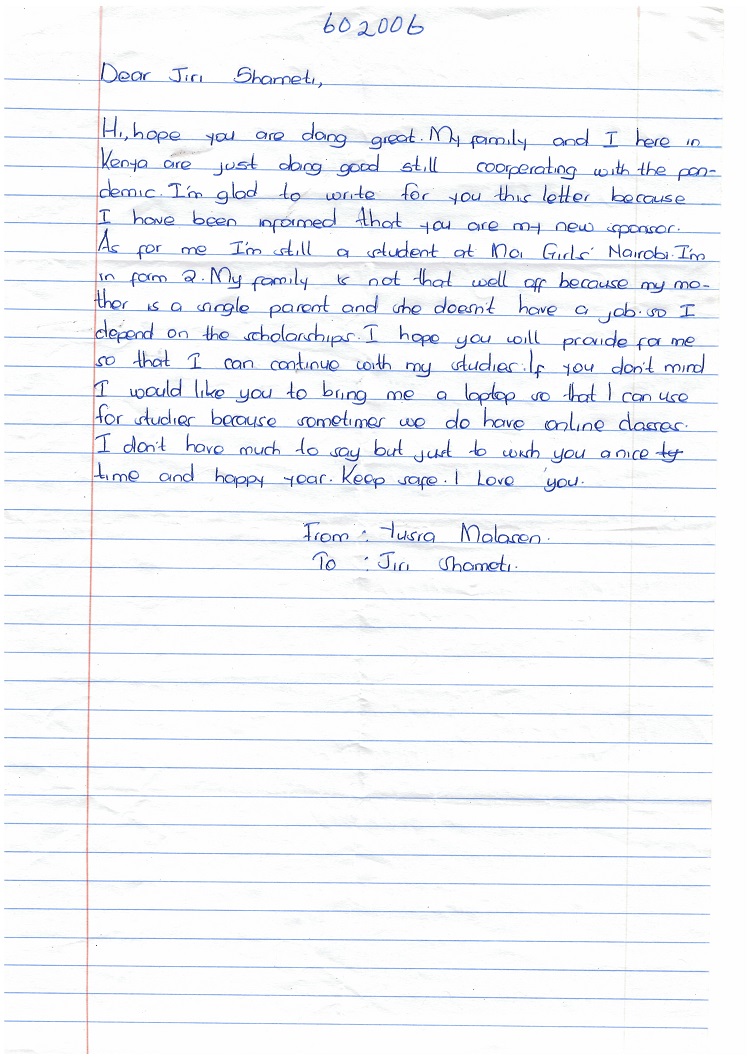 602006
Dear Jiri Shameti,
Hi, hope you are doing great. My family and I here in
Kenya are just doing good still coorperating with the pan-
demic. I'm glad to write for you this letter because
I have been informed that you are my new sponsor.
As for me I'm still a student at Moi Girls' Nairobi. I'm
in form 2. My family is not that well off because my mo-
ther is a single parent and she doesn't have a job. so I
depend on the scholarships. I hope you will provide for me
so that I can continue with my studies. If you don't mind
I would like you to bring me a laptop so that I can use
for studies because sometimes we do have online classes.
I don't have much to say but just to wish you a nice ty
time and happy year. Keep safe. I Love you.
From : Yusra Malasen.
To : Jiri Shameti.